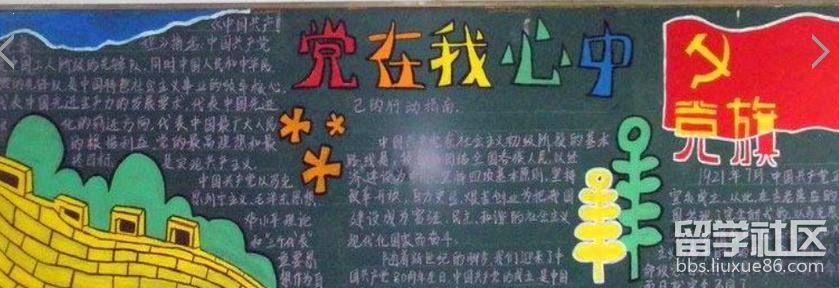 党在我心中
《中国共产
党章》指出,中国共产党
中国工人阶级的先锋队,同时中国人民和中华民
族的先锋队,是中国特色社会主义事业的领导核心,
代表中国先进生产力的发展要求,代表中国先进
化的前进方向,代表中国最广大人民
的根本利益,党的最高理想和最
终目标,是实现共产主义。
中国共产党以马克
思列宁主义、毛泽东思想
邓小平理论
和"三个代表"
重要思
想作为自
己的行动指南。
中国共产党在社会主义初级阶段的基本
路线是:领导和团结全国各族人民,以经
济建设为中心,坚持四项基本原则,坚持
改革开放,自力更生,艰苦创业为把我国
建设成为富强、民主、和谐的社会主义
现代化国家而奋斗。
随着新世纪的脚步,我们迎来了中
国共产党80周年生日,中国共产党的成立是中国
党旗
1921年7月,中国共产党
宣告成立,从此,在
留学社区
bbs.liuxue86.com